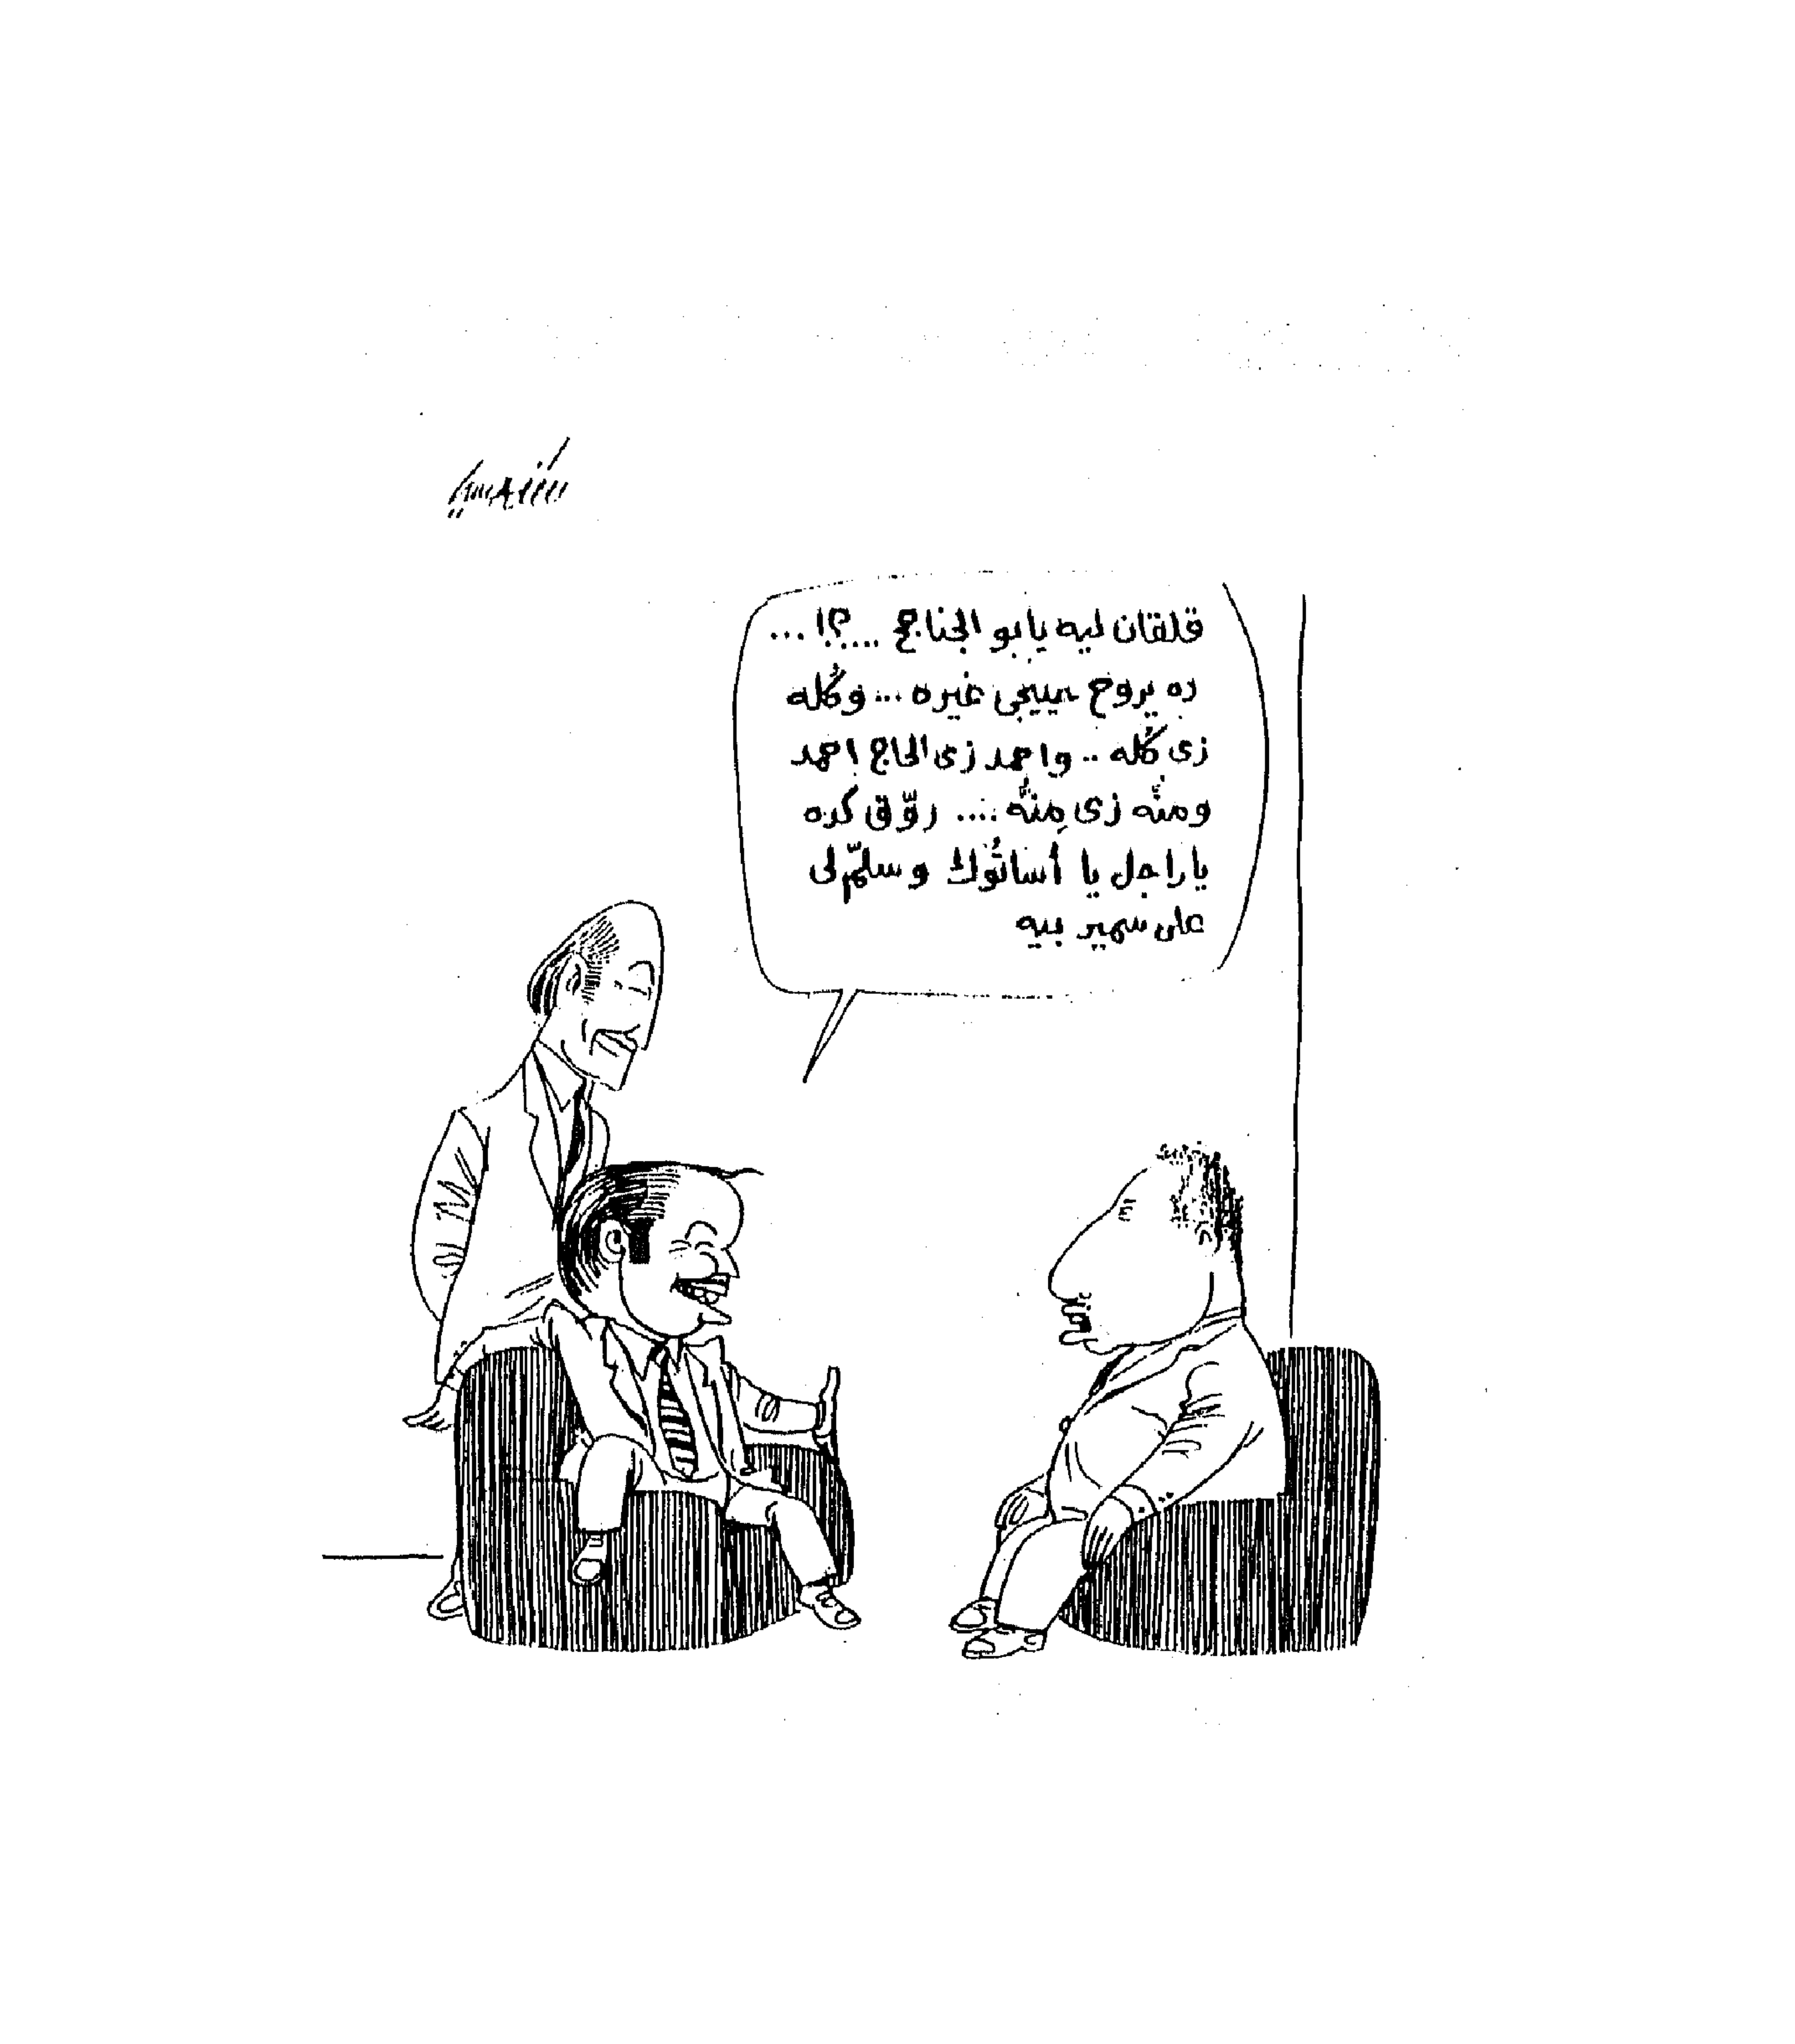 قلقان ليه يا بو الجناح ...؟! ...
ده يروح ييجى غيره ... وكُله
زى كُله .. واحمد زى الحاج احمد
ومنُّه زى مِنُّه .... روّق كده
يا راجل يا أساتُوك وسلّم لى
على سمير بيه